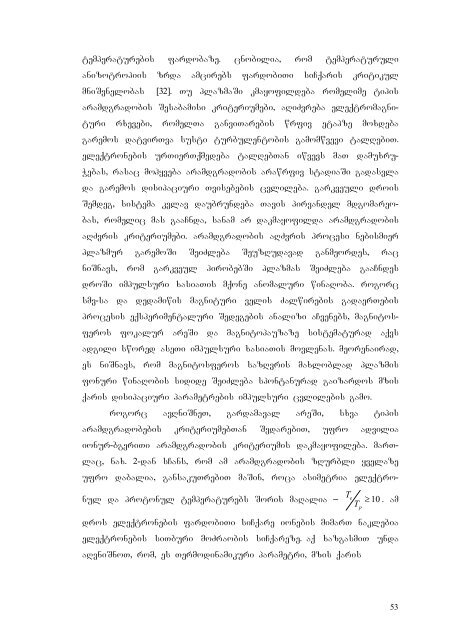 ტემპერატურების ფარდობაზე. ცნობილია, რომ ტემპერატურული
ანიზოტროპიის ზრდა ამცირებს ფარდობითი სიჩქარის კრიტიკულ
მნიშვნელობას [32]. თუ პლაზმაში კმაყოფილდება რომელიმე ტიპის
არამდგრადობის შესაბამისი კრიტერიუმები, აღიძვრება ელექტრომაგნი-
ტური რხევები, რომელთა განვითარების წრფივ ეტაპზე მოხდება
გარემოს დატვირთვა სუსტი ტურბულენტობის გამომწვევი ტალღებით.
ელექტრონების ურთიერთქმედება ტალღებთან იწვევს მათ დამუხრუ-
ჭებას, რასაც მოჰყვება არამდგრადობის არაწრფივ სტადიაში გადასვლა
და გარემოს დისიპაციური თვისებების ცვლილება. გარკვეული დროის
შემდეგ, სისტემა კვლავ დაუბრუნდება თავის პირვანდელ მდგომარეო-
ბას, რომელიც მას გააჩნდა, სანამ არ დაკმაყოფილდა არამდგრადობის
აღძვრის კრიტერიუმები. არამდგრადობის აღძვრის პროცესი ნებისმიერ
პლაზმურ გარემოში შეიძლება შეუზღუდავად განმეორდეს, რაც
ნიშნავს, რომ გარკვეულ პირობებში პლაზმას შეიძლება გააჩნდეს
დროში იმპულსური ხასიათის მქონე ანომალური წინაღობა. როგორც
სმე-სა და დედამიწის მაგნიტური ველის ძალწირების გადაერთების
პროცესის ექსპერიმენტალური შედეგების ანალიზი აჩვენებს, მაგნიტოს-
ფეროს ფოკალურ არეში და მაგნიტოპაუზაზე სისტემატურად აქვს
ადგილი სწორედ ასეთი იმპულსური ხასიათის მოვლენას. მეორენაირად,
ეს ნიშნავს, რომ მაგნიტოსფეროს საზღვრის მახლობლად პლაზმის
ფონური წინაღობის სიდიდე შეიძლება სპონტანურად გაიზარდოს მზის
ქარის დისიპაციური პარამეტრების იმპულსური ცვლილების გამო.
როგორც აღნიშნეთ, გარდამავალ არეში, სხვა ტიპის
არამდგრადობების კრიტერიუმებთან შედარებით, უფრო ადვილია
იონურ-ბგერითი არამდგრადობის კრიტერიუმის დაკმაყოფილება. მართ-
ლაც, ნახ. 2-დან სჩანს, რომ ამ არამდგრადობის ზღურბლი ყველაზე
უფრო დაბალია, განსაკუთრებით მაშინ, როცა ასიმეტრია ელექტრო-
ნულ და პროტონულ ტემპერატურებს შორის მაღალია – Tₑ/Tₚ ≥ 10. ამ
დროს ელექტრონების ფარდობითი სიჩქარე იონების მიმართ ნაკლებია
ელექტრონების სითბური მოძრაობის სიჩქარეზე. აქ ხაზგასმით უნდა
აღვნიშნოთ, რომ, ეს თერმოდინამიკური პარამეტრი, მზის ქარის
53